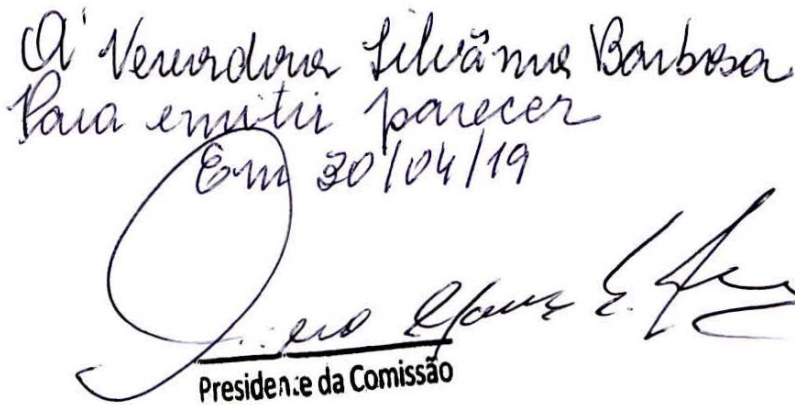 À Vereadora Silvânia Barbosa
Para emitir parecer
Em 30/04/19
Presidente da Comissão